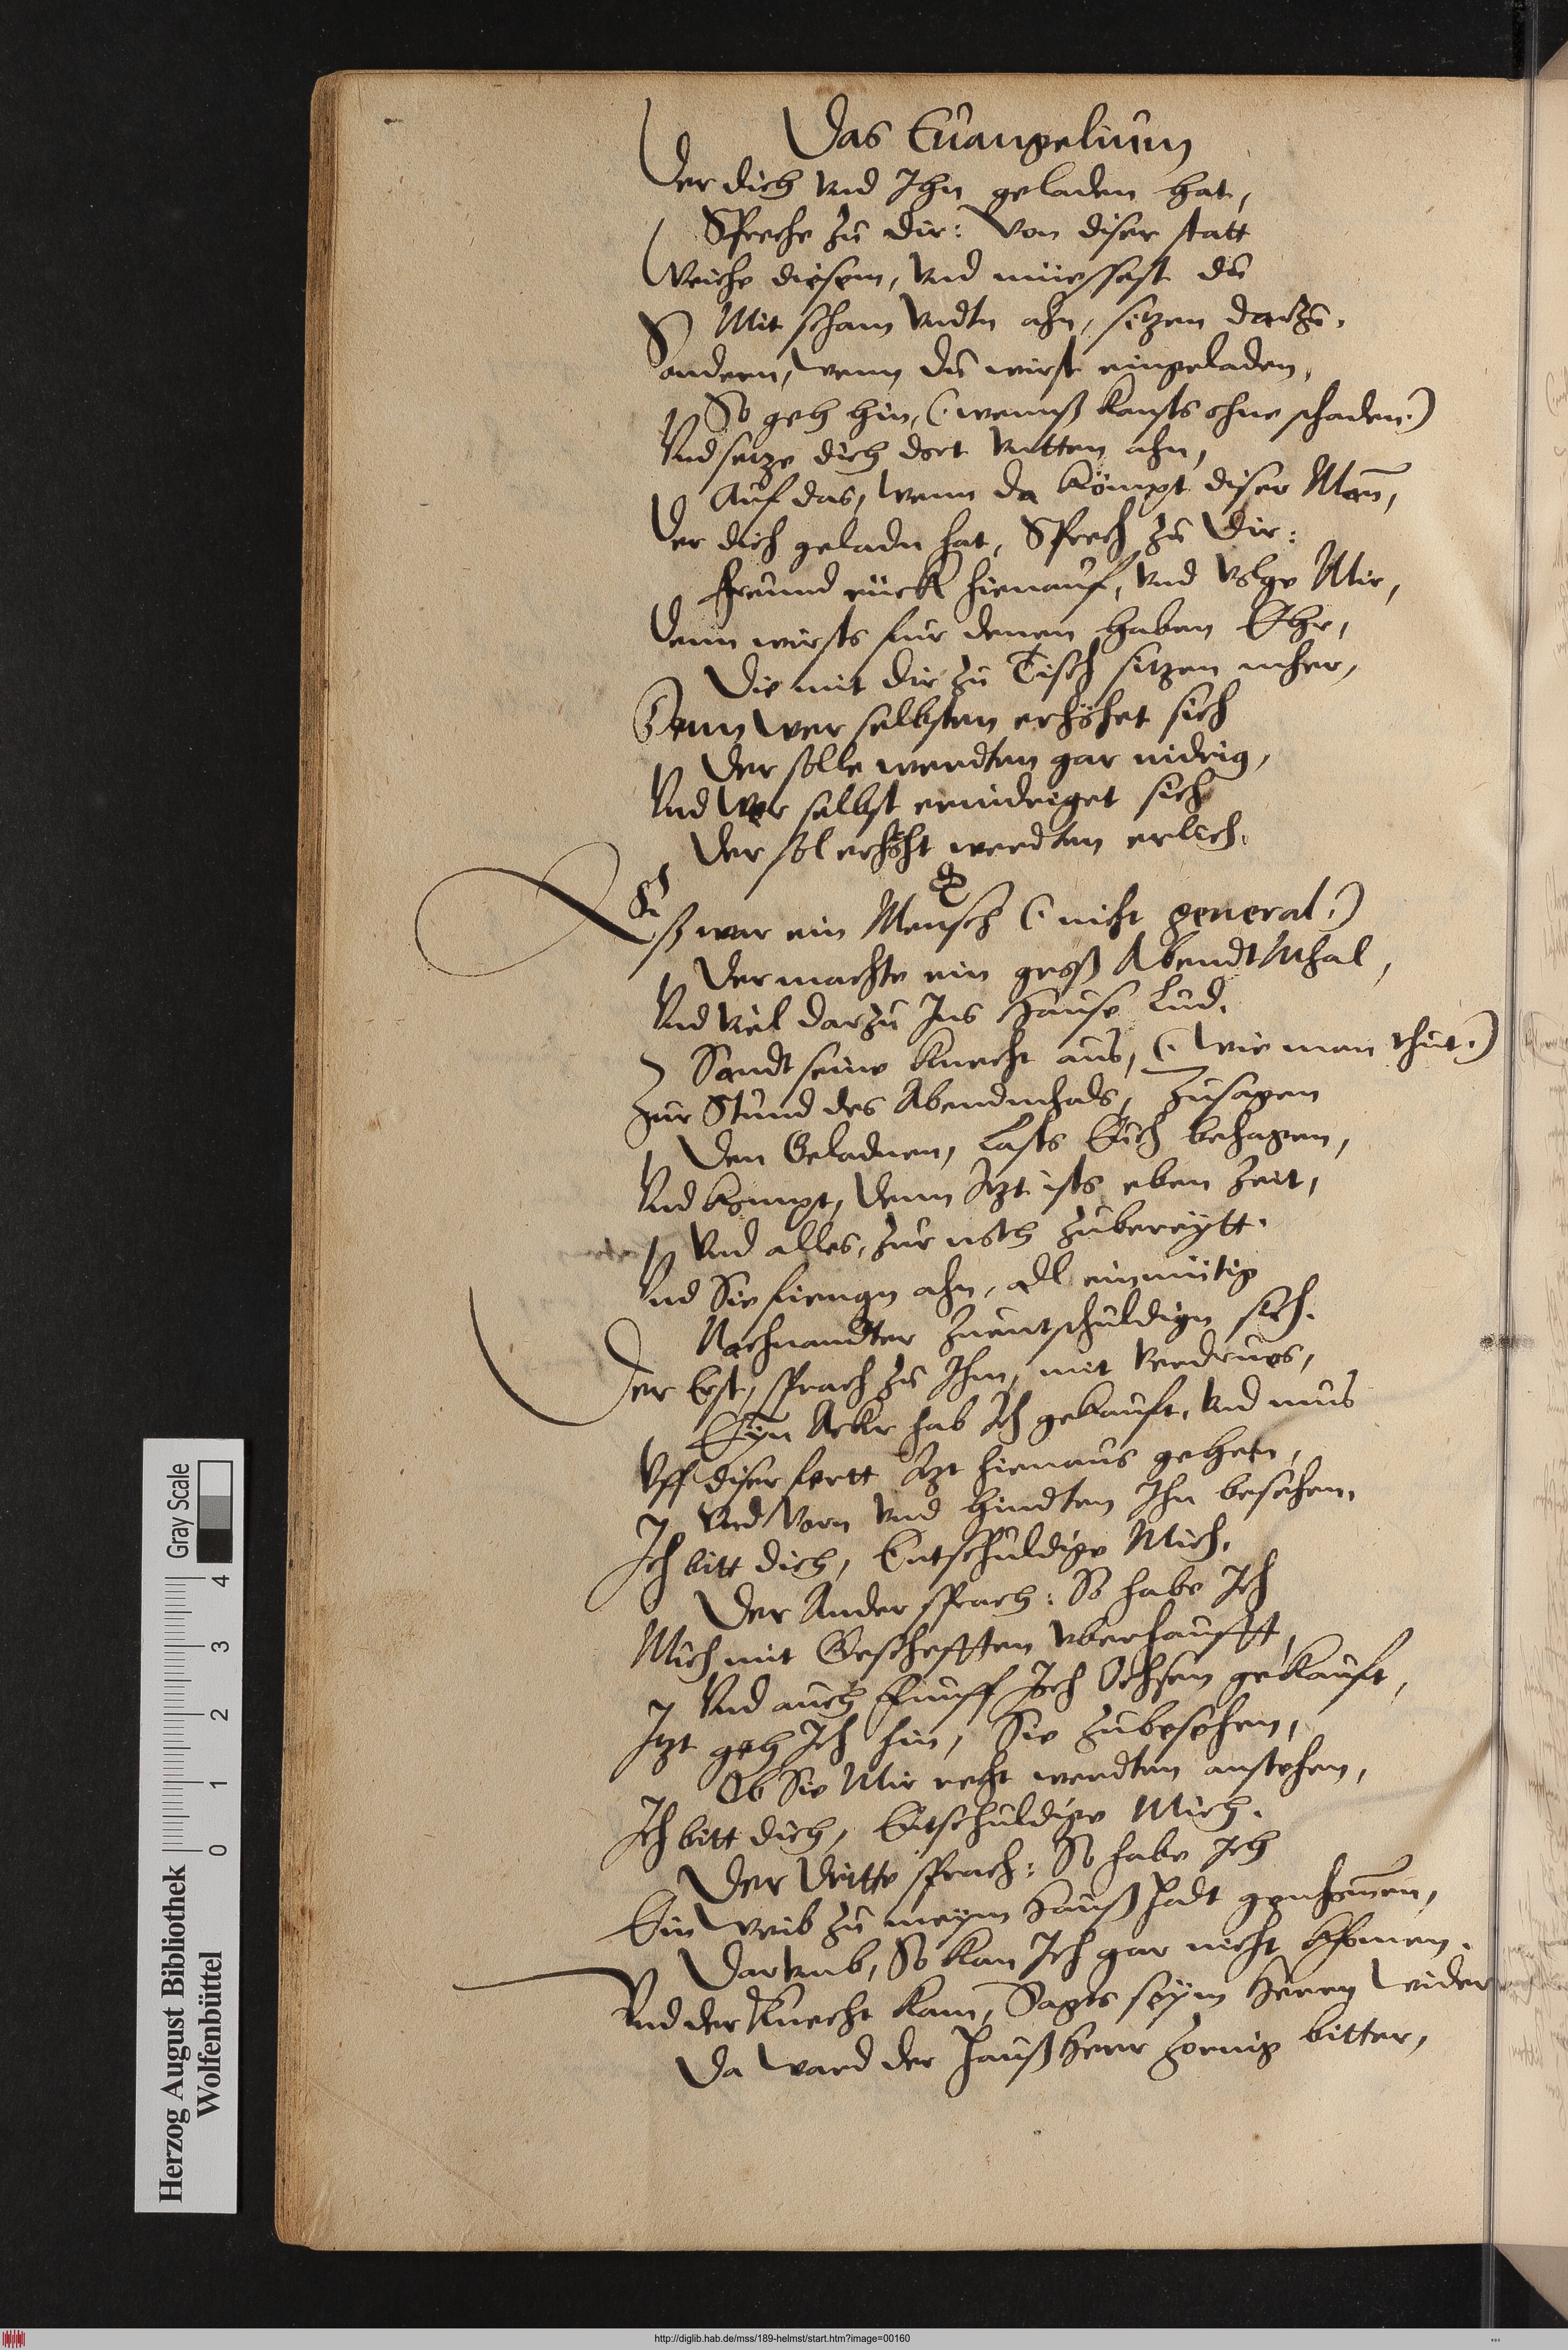 Das Euangelium
Der dich vnd Ihn geladen hat,
Spreche zu dir: Von diser statt
Weiche diesem, vnd müessest du
Mit scham vndtn ahn, sitzen darzu.
Sondern, wenn du wirst eingeladen,
So geh hin, (: wennß kansts ohne schaden:)
Vnd setze dich dort vntten ahn,
Auf das, wenn da kömpt diser Mañ,
Der dich geladn hat, Sprech zu Dir:
Freund rückh hienauf, vnd volge Mir,
Denn wirsts fur denen haben Ehr,
Die mit dir zu Tisch sitzen mher,
Denn wer selbsten erhöhet sich
Der solle werdten gar nidrig,
Vnd wer selbst ernidriget sich
Der sol erhöht werdten erlich.
Eß war ein Mensch (: nicht general:)
Der machte ein groß Abendt Mhal,
Vnd viel darzu Ins Hause Lud.
Sandt seine Knecht aus, (: wie man thut:)
Zur Stund des Abendmhals, zusagen
Den Geladnen, Lasts Euch behagen,
Vnd kompt, denn Itzt ists eben Zeit,
Vnd alles, zur noth zubereytt.
Vnd Sie fiengn ahn, all einmütig
Nachnandter zuentschuldign sich.
Der Erst, sprach zu Ihm, mit verdrues,
Eyn Ackr hab Ich gekauft, vnd mus
Vff diser fertt Itzt hienaus gehen,
Vnd vorn vnd hindten Ihn besehen.
Ich bitt dich, Entschuldige Mich.
Der Ander sprach: So habe Ich
Mich mit Geschefften vberhaufft,
Vnd auch Funff Joch Ochsen gekauft,
Itzt geh Ich hin, Sie zubesehen,
Ob Sie Mir recht werdten anstehen,
Ich bitt dich, Entschuldige Mich.
Der Dritte sprach: So habe Ich
Ein Weib zu meym Haußhadt genhom̃en,
Darumb, So kan Ich gar nicht khomen.
Vnd der Knecht kam, Sagts seym Herrn wider
Da ward der Haußherr zornig bitter,
Herzog August Bibliothek
Wolfenbüttel
0 1 2 3 4
Gray Scale
http://diglib.hab.de/mss/189-helmst/start.htm?image=00160